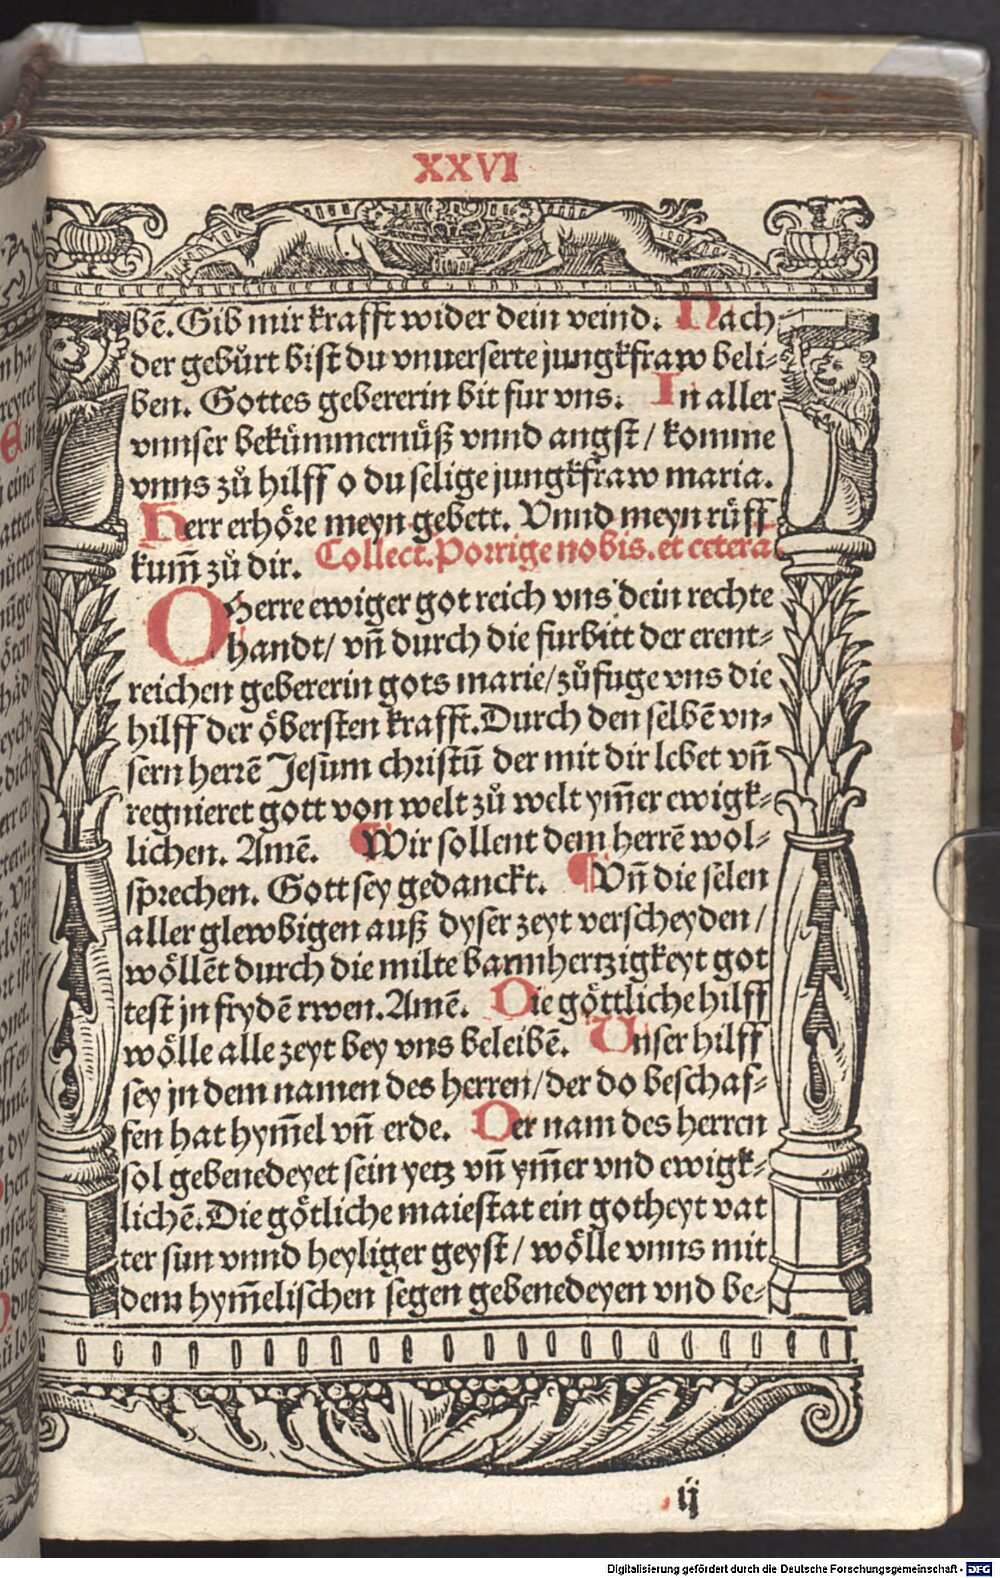 XXVI
bẽ. Gib mir krafft wider dein veind. Nach
der gebůrt bist du vnuerserte jungkfraw beli-
ben. Gottes gebererin bit fur vns. In aller
vnnser bekümmernüß vnnd angst / komme
vnns zů hilff o du selige jungkfraw maria.
Herr erhöre meyn gebett. Vnnd meyn rüff
kum̃ zů dir. Collect. Porrige nobis. et cetera.
O Herre ewiger got reich vns dein rechte
handt / vñ durch die furbitt der erent-
reichen gebererin gots marie / zůfuge vns die
hilff der öbersten krafft. Durch den selbẽ vn-
sern herrẽ Jesum christũ der mit dir lebet vñ
regnieret gott von welt zů welt ym̃er ewigk-
lichen. Amẽ. ¶ Wir sollent dem herrẽ wol-
sprechen. Gott sey gedanckt. ¶ Vñ die selen
aller glewbigen auß dyser zeyt verscheyden /
wöllẽt durch die milte barmhertzigkeyt got
test jn frydẽ rwen. Amẽ. Die göttliche hilff
wölle alle zeyt bey vns beleibẽ. Unser hilff
sey jn dem namen des herren / der do beschaf-
fen hat hym̃el vñ erde. Der nam des herren
sol gebenedeyet sein yetz vñ ym̃er vnd ewigk-
lichẽ. Die götliche maiestat ein gotheyt vat
ter sun vnnd heyliger geyst / wölle vnns mit
dem hym̃elischen segen gebenedeyen vnd be-
ij
Digitalisierung gefördert durch die Deutsche Forschungsgemeinschaft - DFG